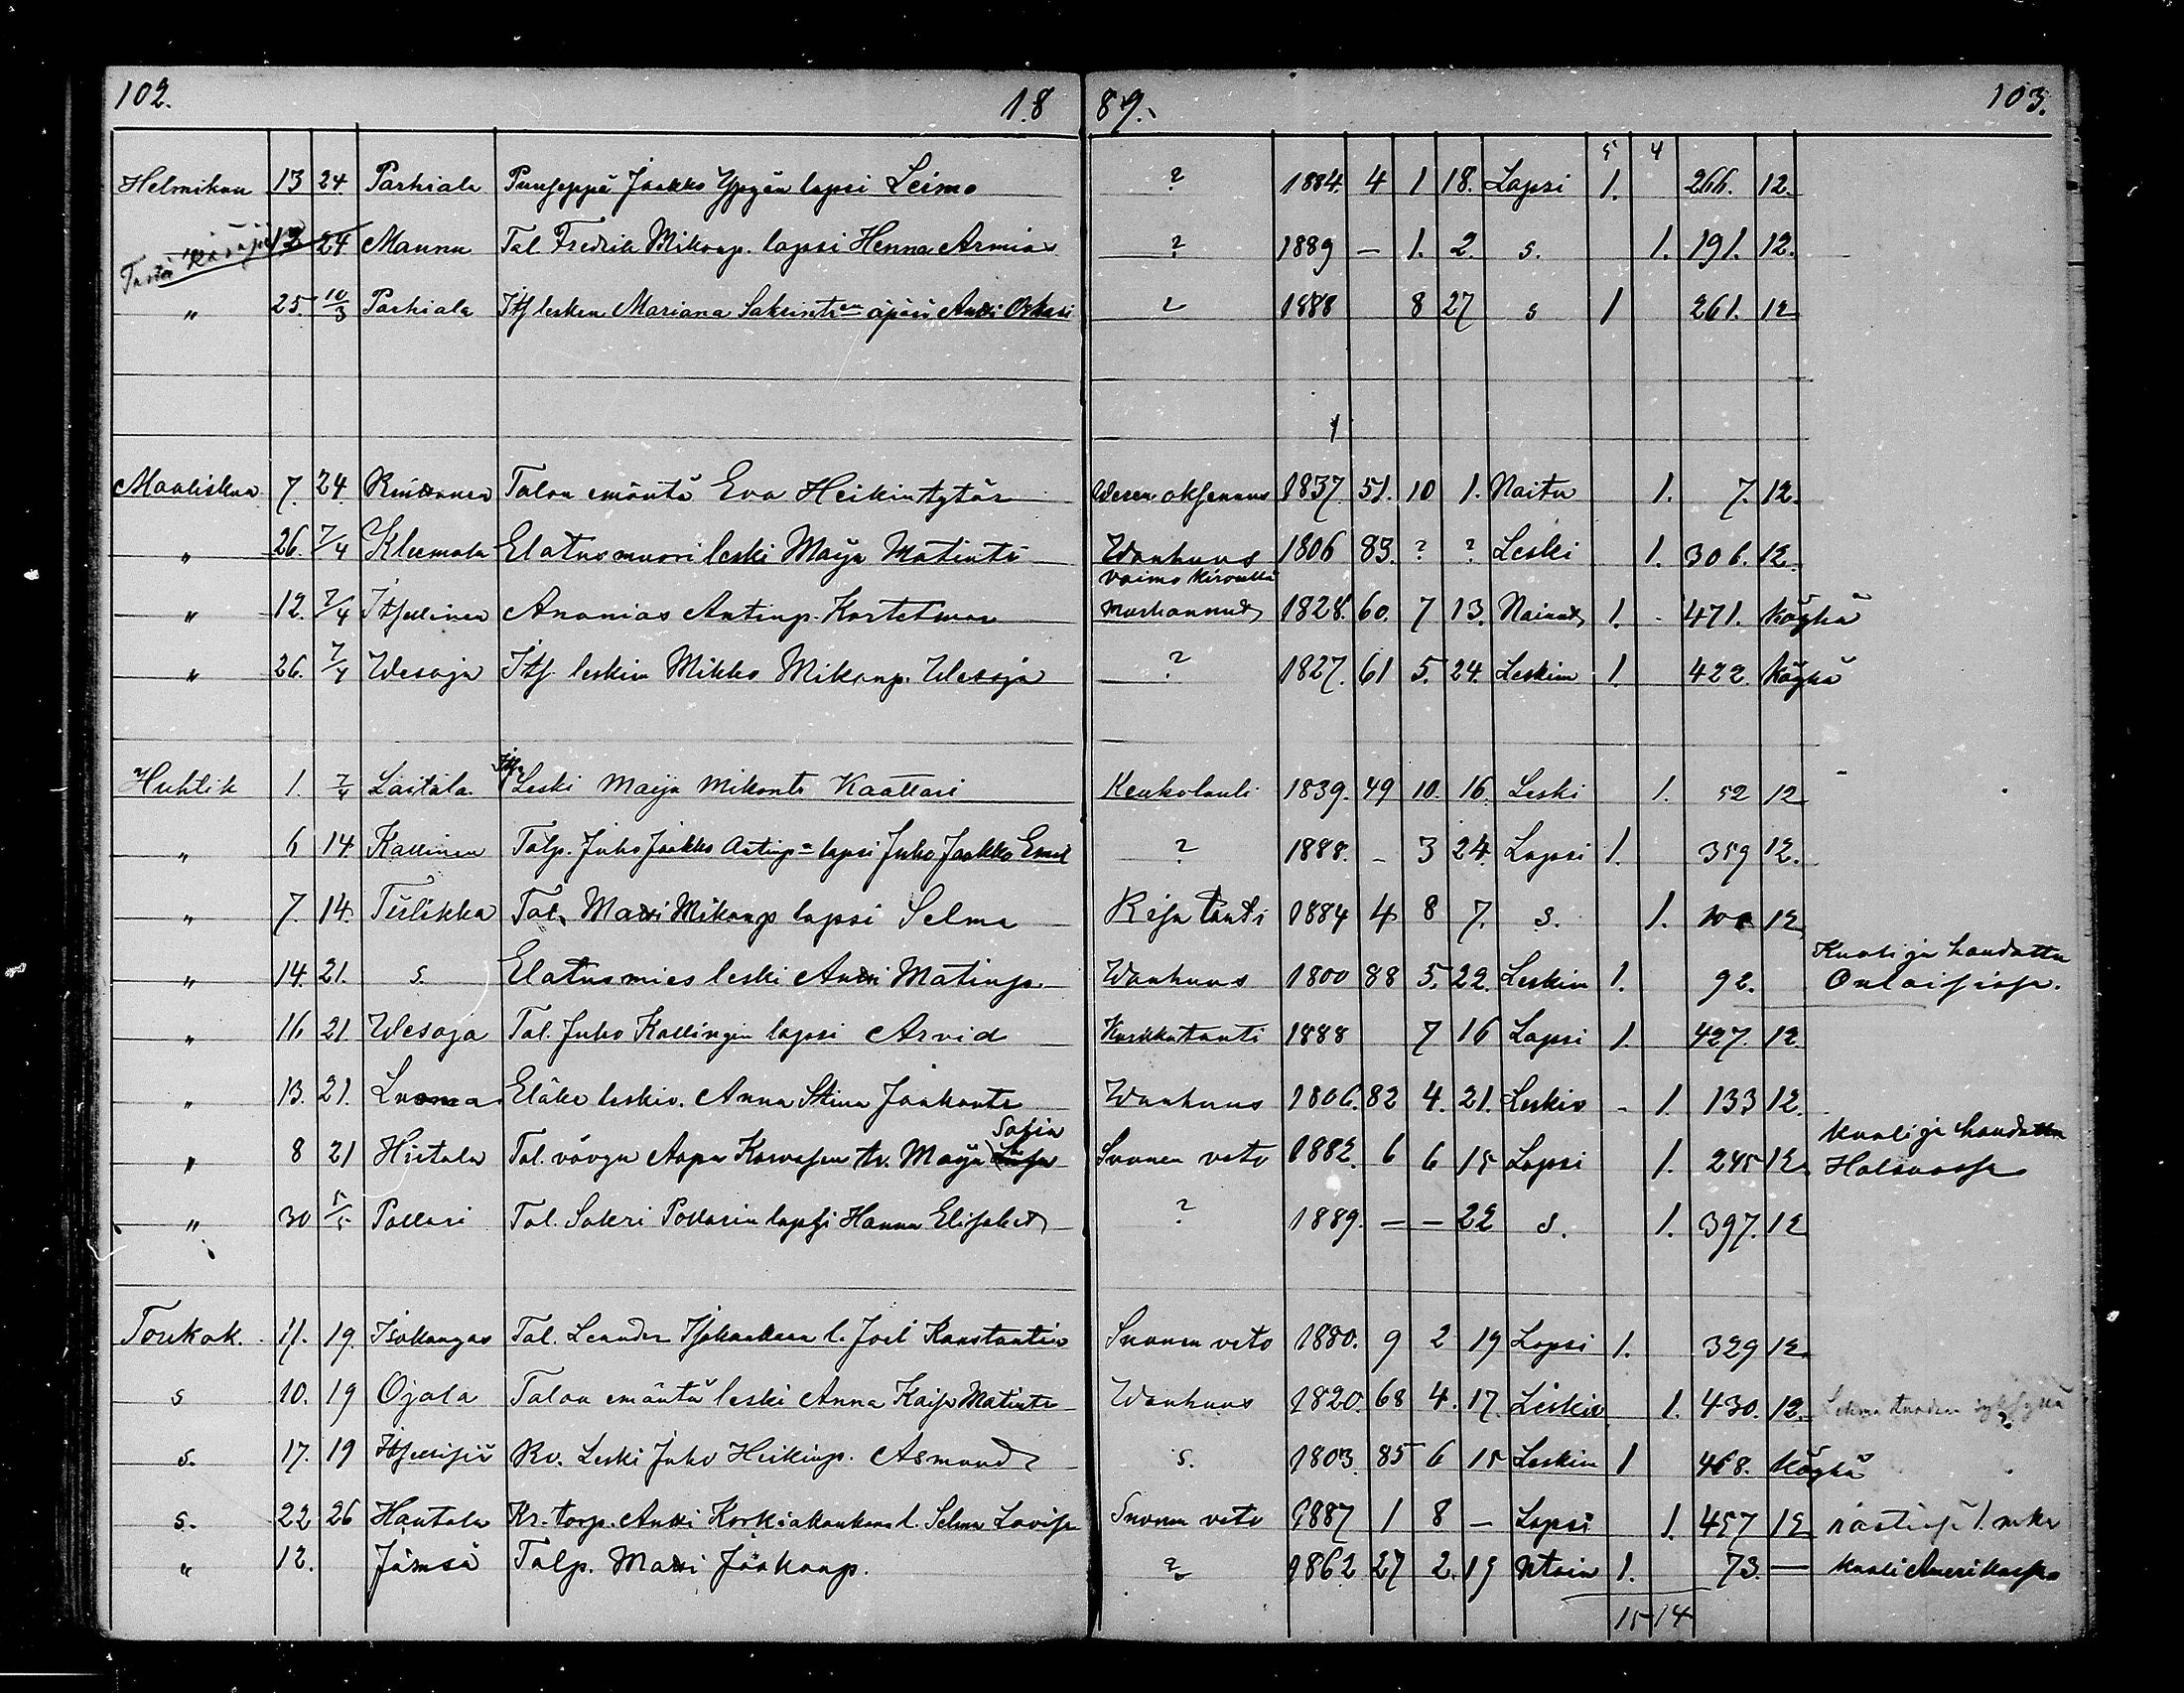 102. 18 89. 103.
5 4
Helmikuu 13 24. Parhiala Puuseppä Jaakko Ypyän lapsi Leimo ? 1884. 4 1 18. Lapsi 1. 266. 12.
13 24 Maunu Tal. Fredrik Mikonp. lapsi Henna Armia ? 1889 — 1. 2. s. 1. 191. 12.
" 25. 10/3 Parhiala Its lesken Mariana äpärä Antti Oskari ? 1888 8 27 s 1 261. 12
1
Maaliskuu 7. 24. Talon emäntä Eva Heikintytär Weren oksennus 1837. 51. 10 1. Naitu 1. 7. 12.
" 26. 7/4 Kleemola Elatusmuori leski Maija Matintr Wanhuus 1806 83. ? ? Leski 1. 306. 12.
vaimo kirveellä
" 12. 7/4 Ananias Antinp. murhannut 1828. 60. 7 13. Nainut 1. 471. köyhä
" 26. 7/4 Wesoja Its. leskin Mikko Mikonp. Wesoja ? 1827. 61 5. 24. Leskin 1. 422. köyhä
Huhtik 1. 7/4 Laitala Its. Leski Maija Mikontr Kaattari Keuhkotauti 1839. 49 10. 16. Leski 1. 52 12
" 6 14 Kallinen Talp. Juho Jaakko Antinp. lapsi Juho Jaakko Emil ? 1888. - 3 24. Lapsi 1. 359 12.
" 7. 14. Tiilikka Tal. Matti Mikonp lapsi Selma Risa tauti 1884 4 8 7. s. 1. 12
Kuoli ja haudattu
" 14. 21. s. Elatusmies leski Antti Matinp. Wanhuus 1800 88 5. 22. Leskin 1. 92. Oulaisissa.
" 16 21. Wesoja Tal. Juho Kallingin lapsi Arvid Kurkkutauti 1888 7 16 Lapsi 1. 427. 12.
" 13. 21. Luoma Eläke leskiv. Anna Stina Jaakontr Wanhuus 1806. 82 4. 21. Leskiv - 1. 133 12.
Sofia Kuoli ja haudattu
" 8 21 Hietala Tal. vävyn Aapu Karvosen tr. Maija Liisa Suonen veto 1882. 6 6 15 Lapsi 1. 245 12 Halsuassa
" 30 5/5 Pollari Tal. Sakri Pollarin lapsi Hanna Elisabet ? 1889. — — 22 s. 1. 397. 12
Toukok. 11. 19. Isokangas Tal. Leander Isokankaan l. Joel Konstantin Suonen veto 1880. 9 2 19 Lapsi 1. 329 12.
s 10. 19 Ojala Talon emäntä leski Anna Kaisa Matintr Wanhuus 1820. 68 4. 17. Leskiv 1. 430. 12.
s. 17. 19 Rv. Leski Juho Heikinp. Asmund s. 1803. 85 6 15 Leskin 1 468. köyhä
s. 22 26 Hautala Kr. torp. Antti Korkiakankaan l. Selma Lovisa Suonen veto 1887 1 8 — Lapsi 1. 457 12 rästissä 1. mka
" 12. Jämsä Talp. Matti Jaakonp. ? 1862 27 2. 19 Ntoin 1. 73. — Kuoli Amerikassa
15 14